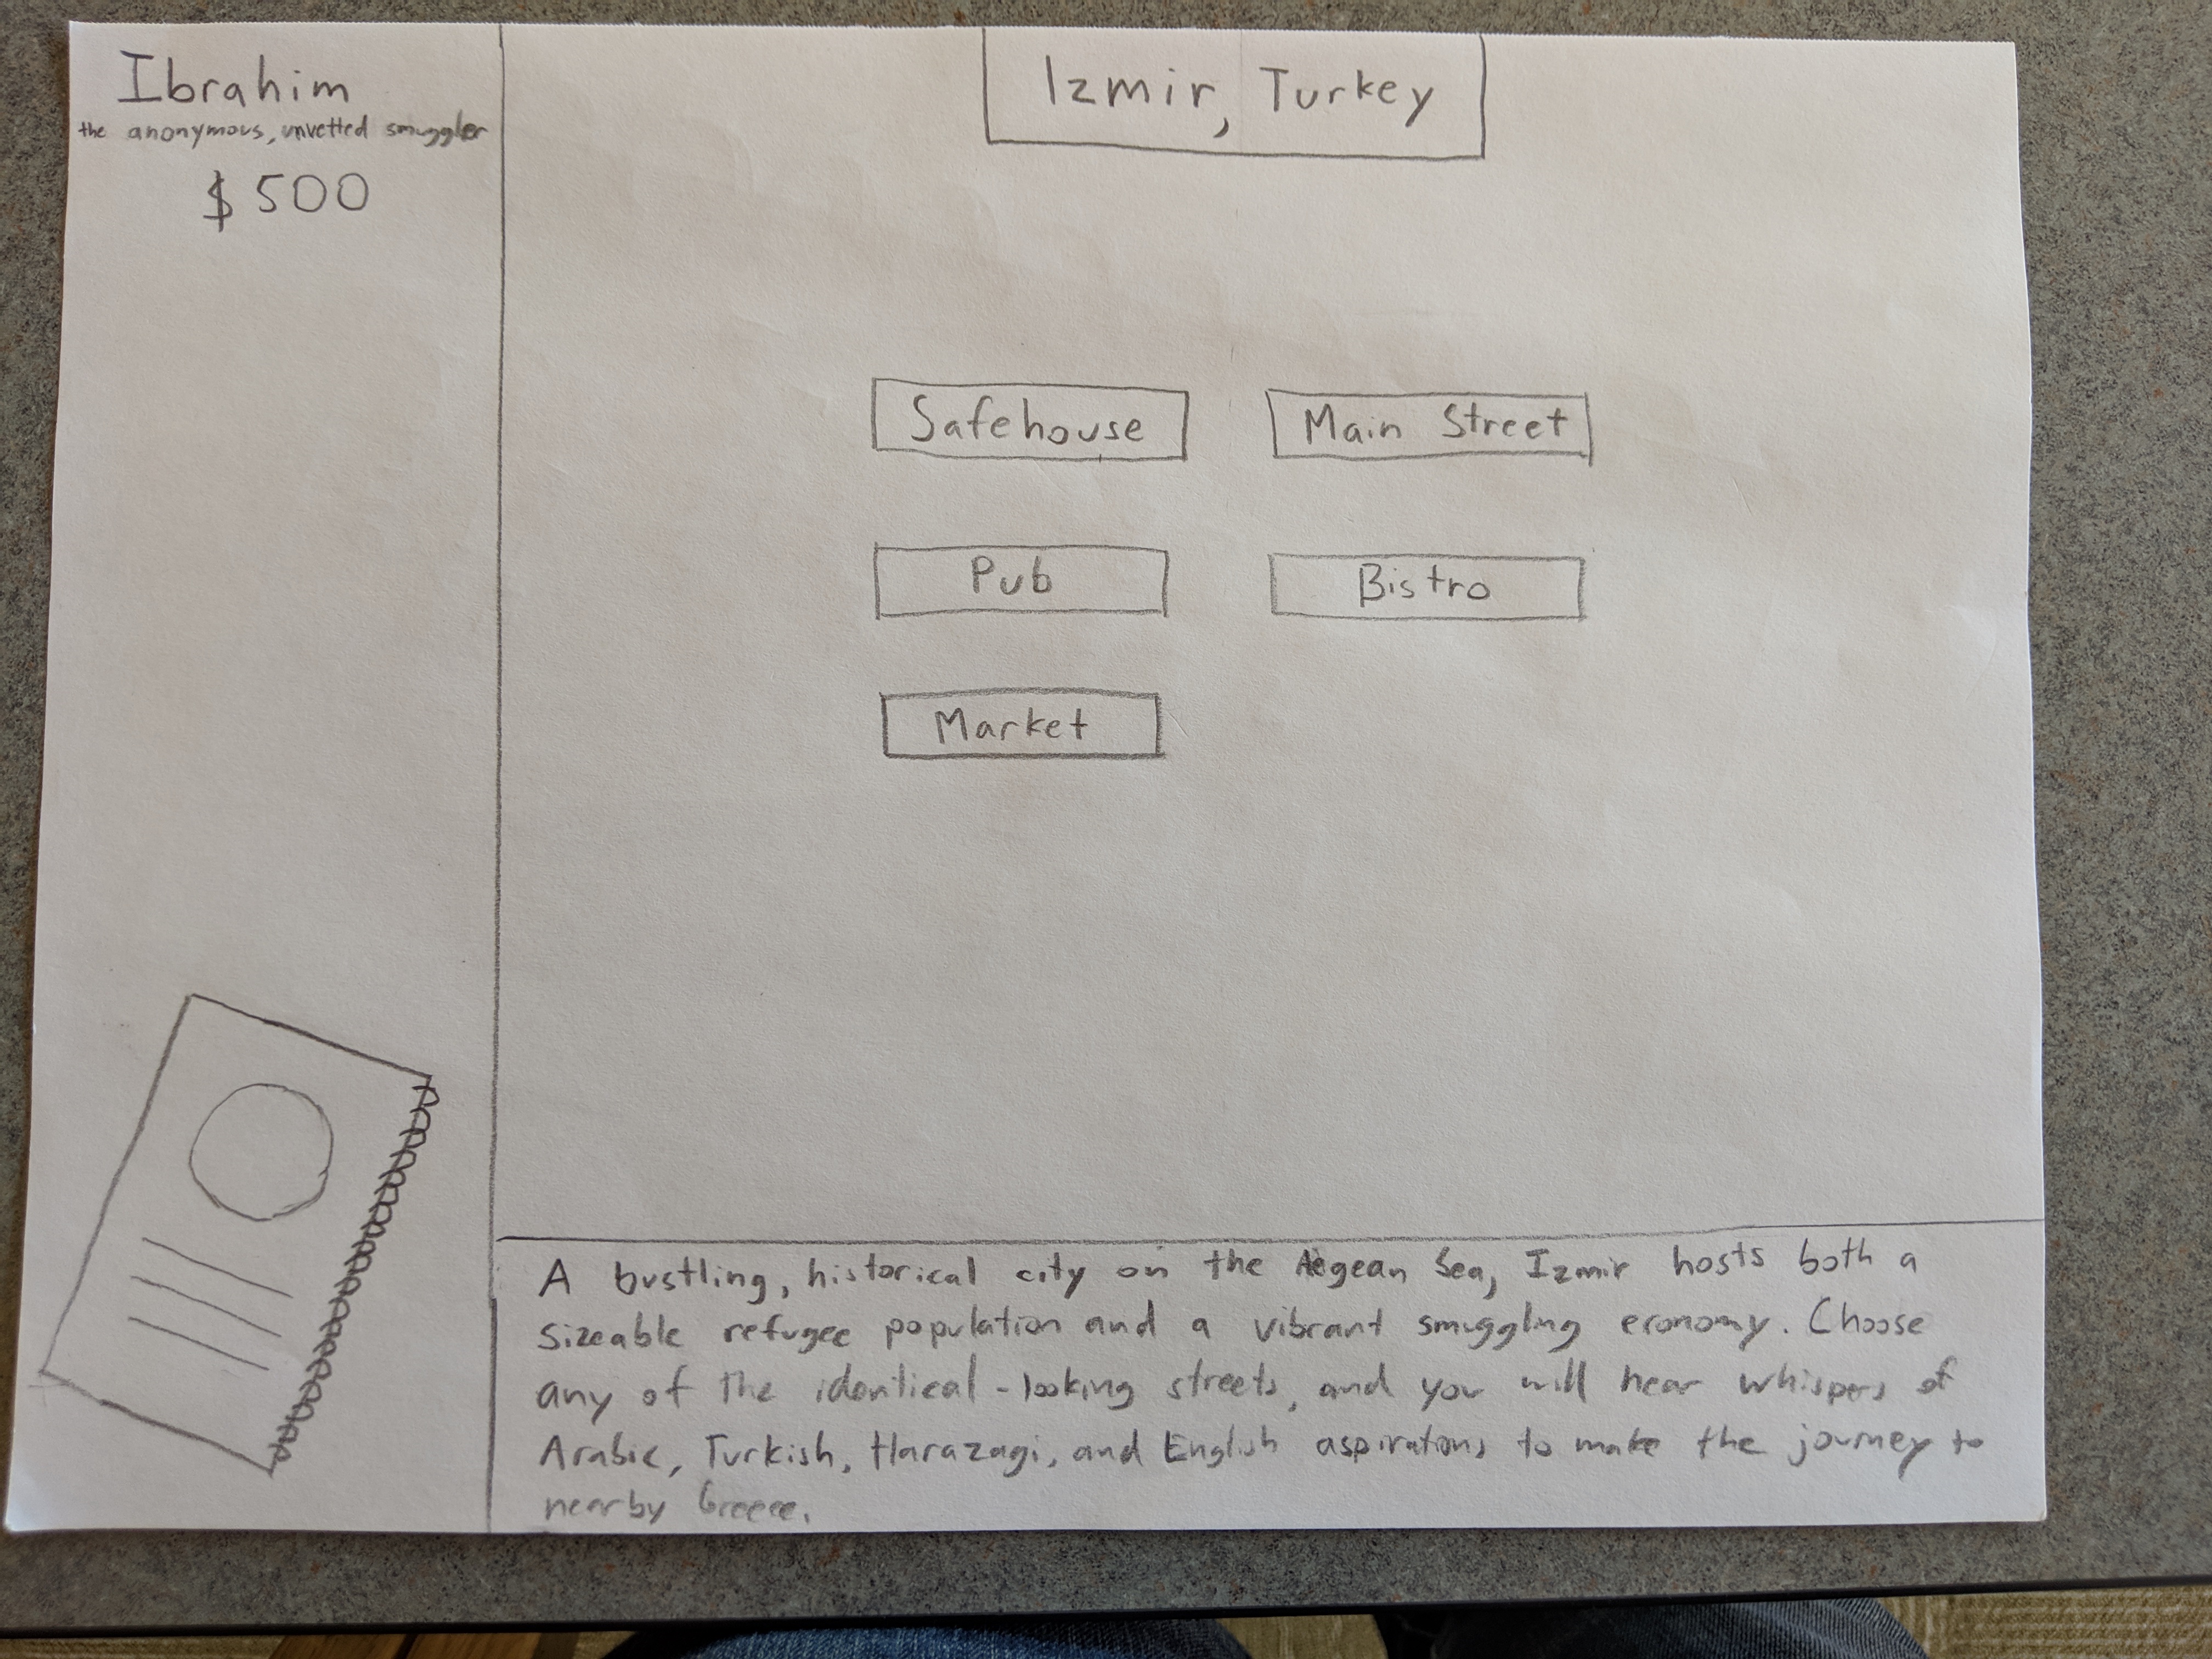 Ibrahim
the anonymous, unvetted smuggler
$500
Izmir, Turkey
Safehouse
Main Street
Pub
Bistro
Market
A bustling, historical city on the Aegean Sea, Izmir hosts both a
sizeable refugee population and a vibrant smuggling economy. Choose
any of the identical-looking streets, and you will hear whispers of
Arabic, Turkish, Harazagi, and English aspirations to make the journey to
nearby Greece.